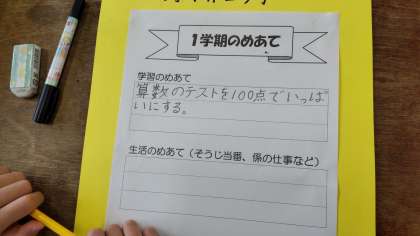 1学期のめあて
学習のめあて
算数のテストを100点でいっぱ
いにする。
生活のめあて(そうじ当番、係の仕事など)